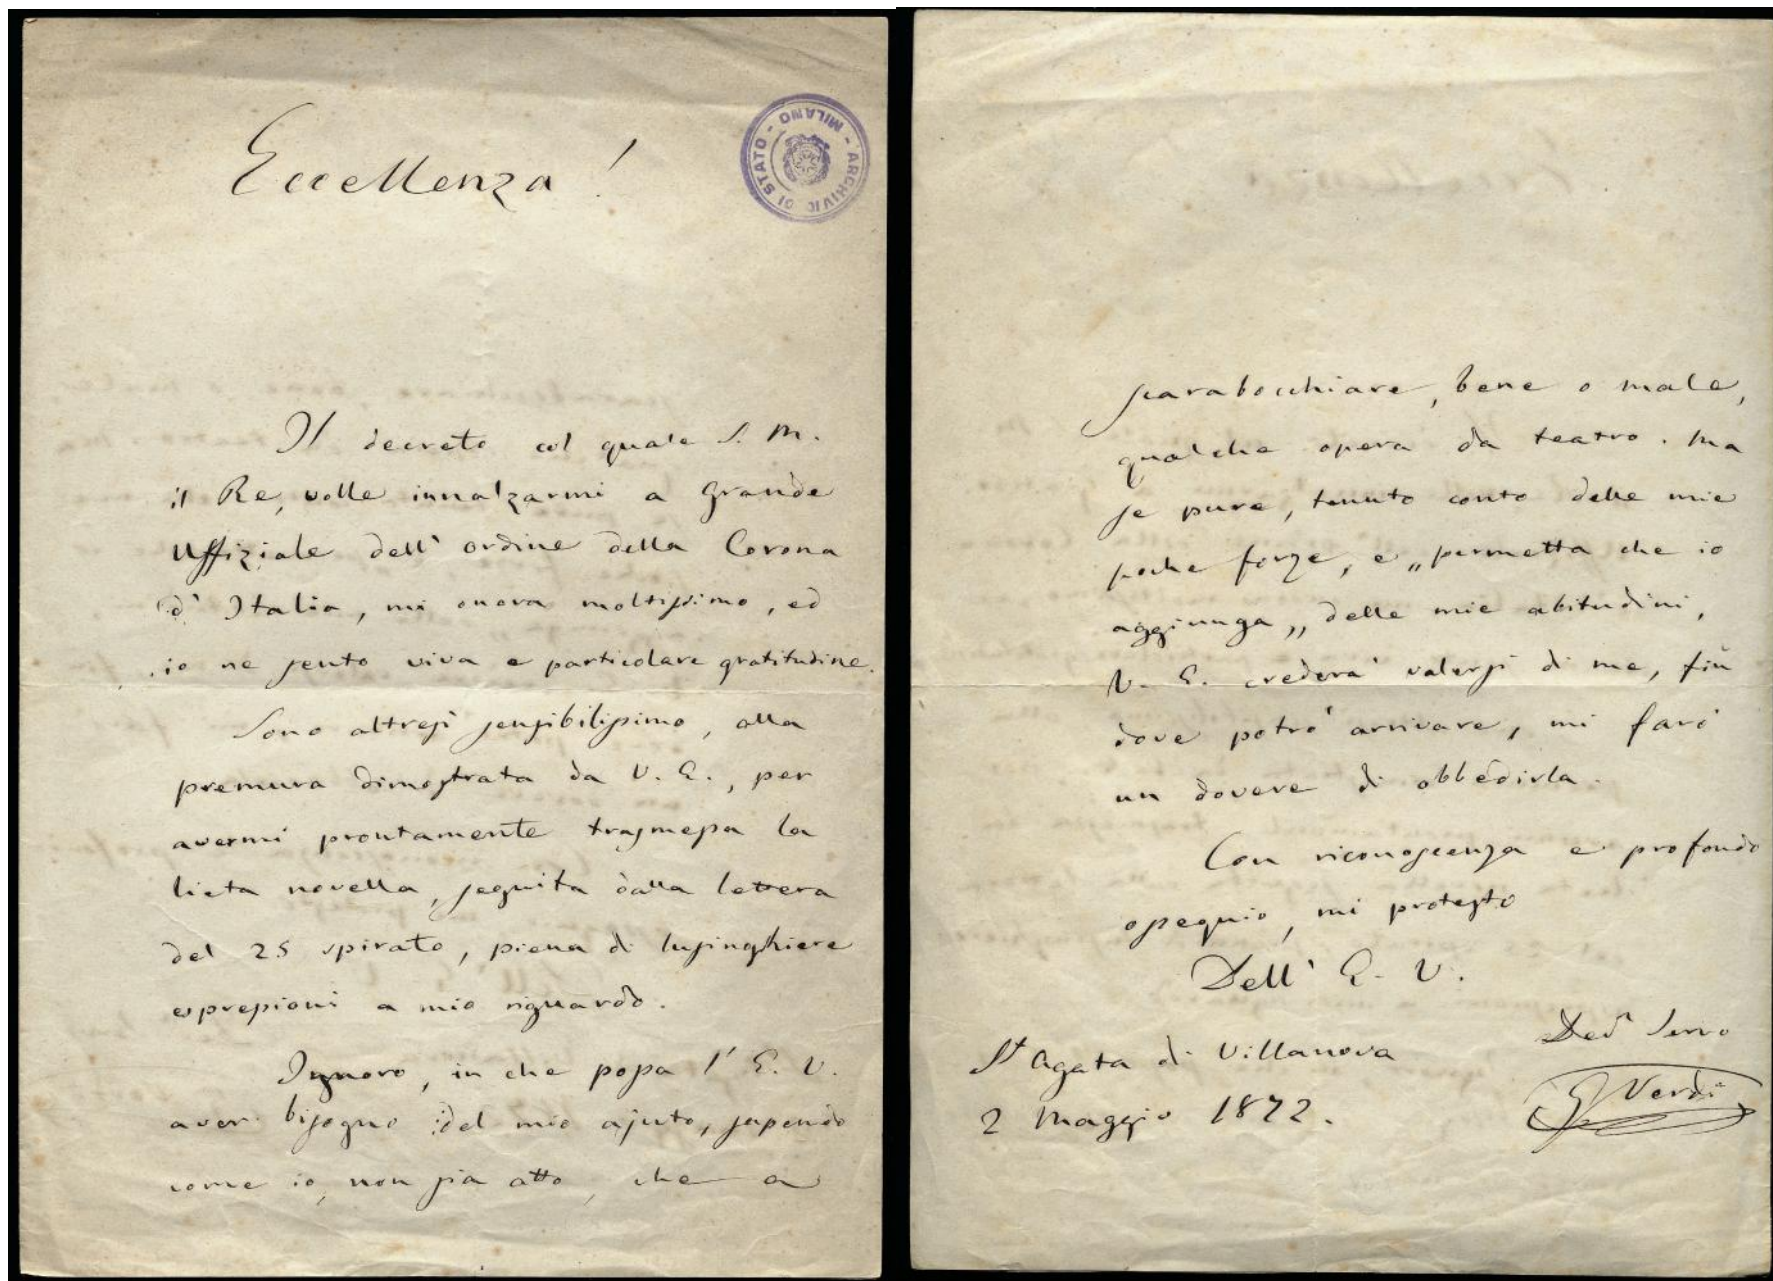 Eccellenza!
ARCHIVIO DI STATO - MILANO -
Il decreto col quale S. M.
il Re, volle innalzarmi a Grande
Uffiziale dell' ordine della Corona
d' Italia, mi onora moltissimo, ed
io ne sento viva e particolare gratitudine.
Sono altresì sensibilissimo, alla
premura dimostrata da V. E., per
avermi prontamente trasmessa la
lieta novella, seguita dalla lettera
del 25 spirato, piena di lusinghiere
espressioni a mio riguardo.
Ignoro, in che possa l' E. V.
aver bisogno del mio ajuto, sapendo
come io, non sia atto, che a
scarabocchiare, bene o male,
qualche opera da teatro. Ma
se pure, tenuto conto delle mie
poche forze, e „permetta che io
aggiunga„ delle mie abitudini,
V. E. crederà valersi di me, fin
dove potrò arrivare, mi farò
un dovere di obbedirla.
Con riconoscenza e profondo
ossequio, mi protesto
Dell' E. V.
St Agata di Villanova
2 Maggio 1872.
Dev Servo
G Verdi